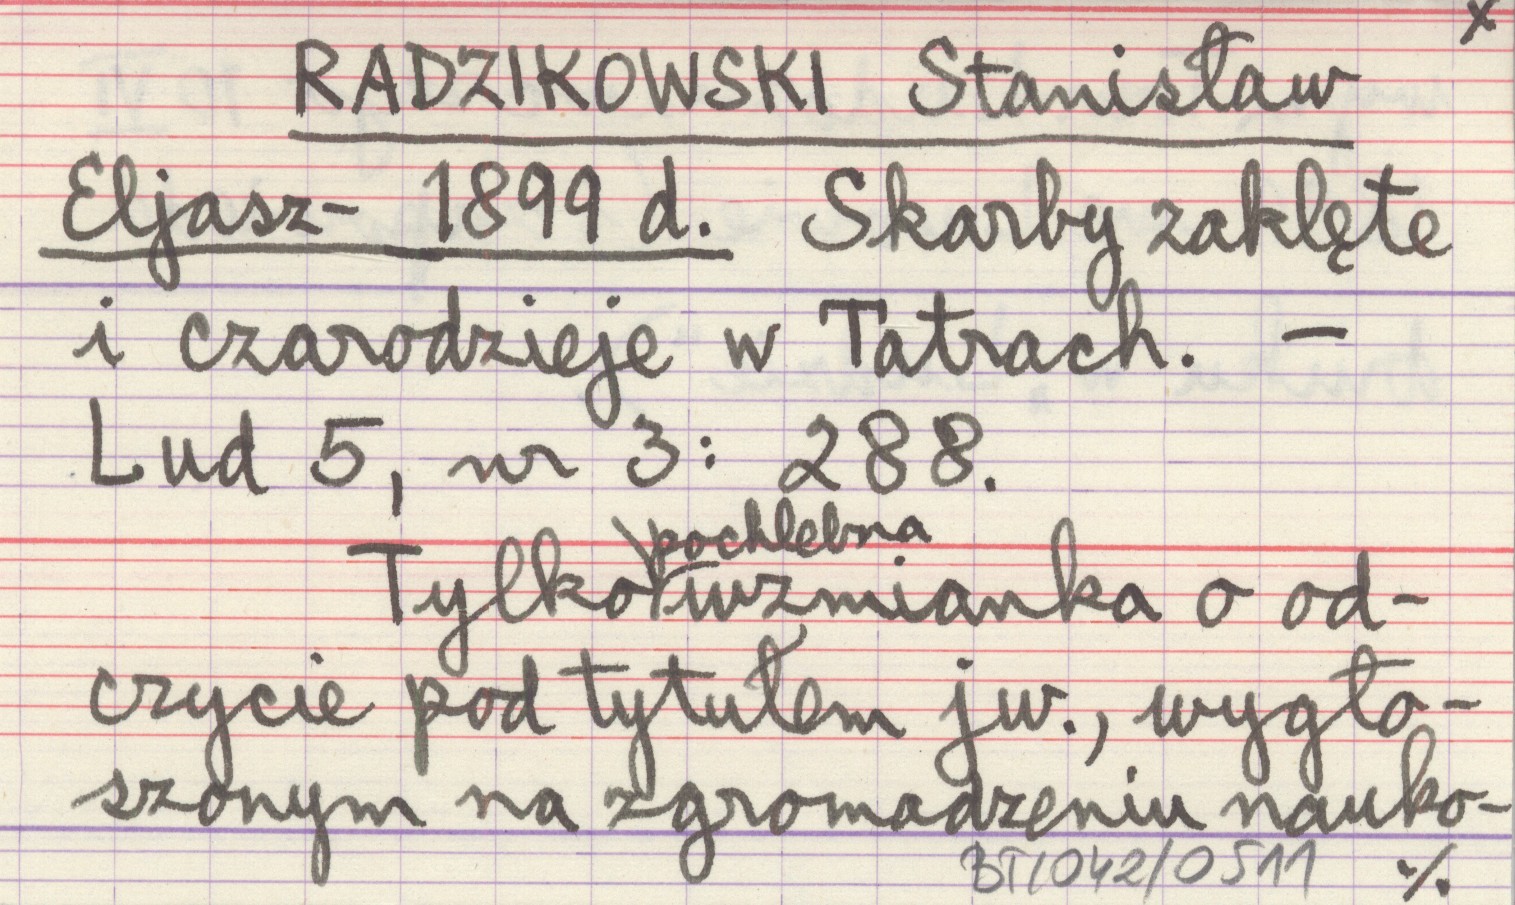 x
RADZIKOWSKI Stanisław
Eljasz- 1899 d. Skarby zaklęte
i czarodzieje w Tatrach. –
Lud 5, nr 3: 288.
pochlebna
Tylko wzmianka o od-
czycie pod tytułem jw., wygło-
szonym na zgromadzeniu nauko-
BT/042/0511 ./.